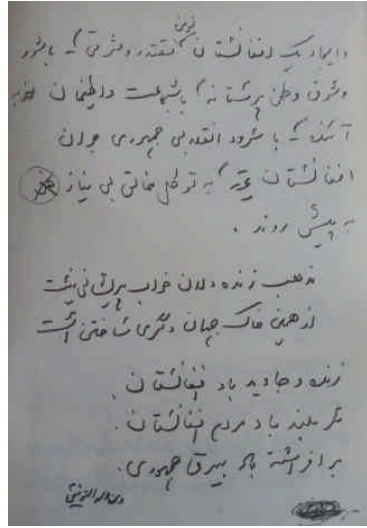 نوین
و ایجاد یک افغانستان مقتدر و مترقی با شور
و شوق وطن پرستانه با شجاعت و اطمینان به
آینده با سرود انقلابی جمهوری جوان
افغانستان به توکل خالق بی نیاز
به پیش روند .
مذهب زنده دلان خواب پریشانی نیست
از همین خاک جهان دگری ساختن است
زنده و جاوید باد افغانستان .
سر بلند باد مردم افغانستان .
برافراشته باد بیرق جمهوری .